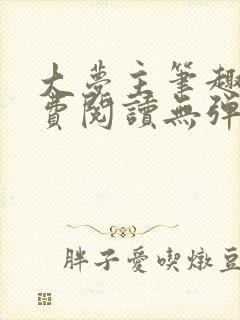 大夢主筆趣
費閱讀無彈
胖子愛喫燉豆